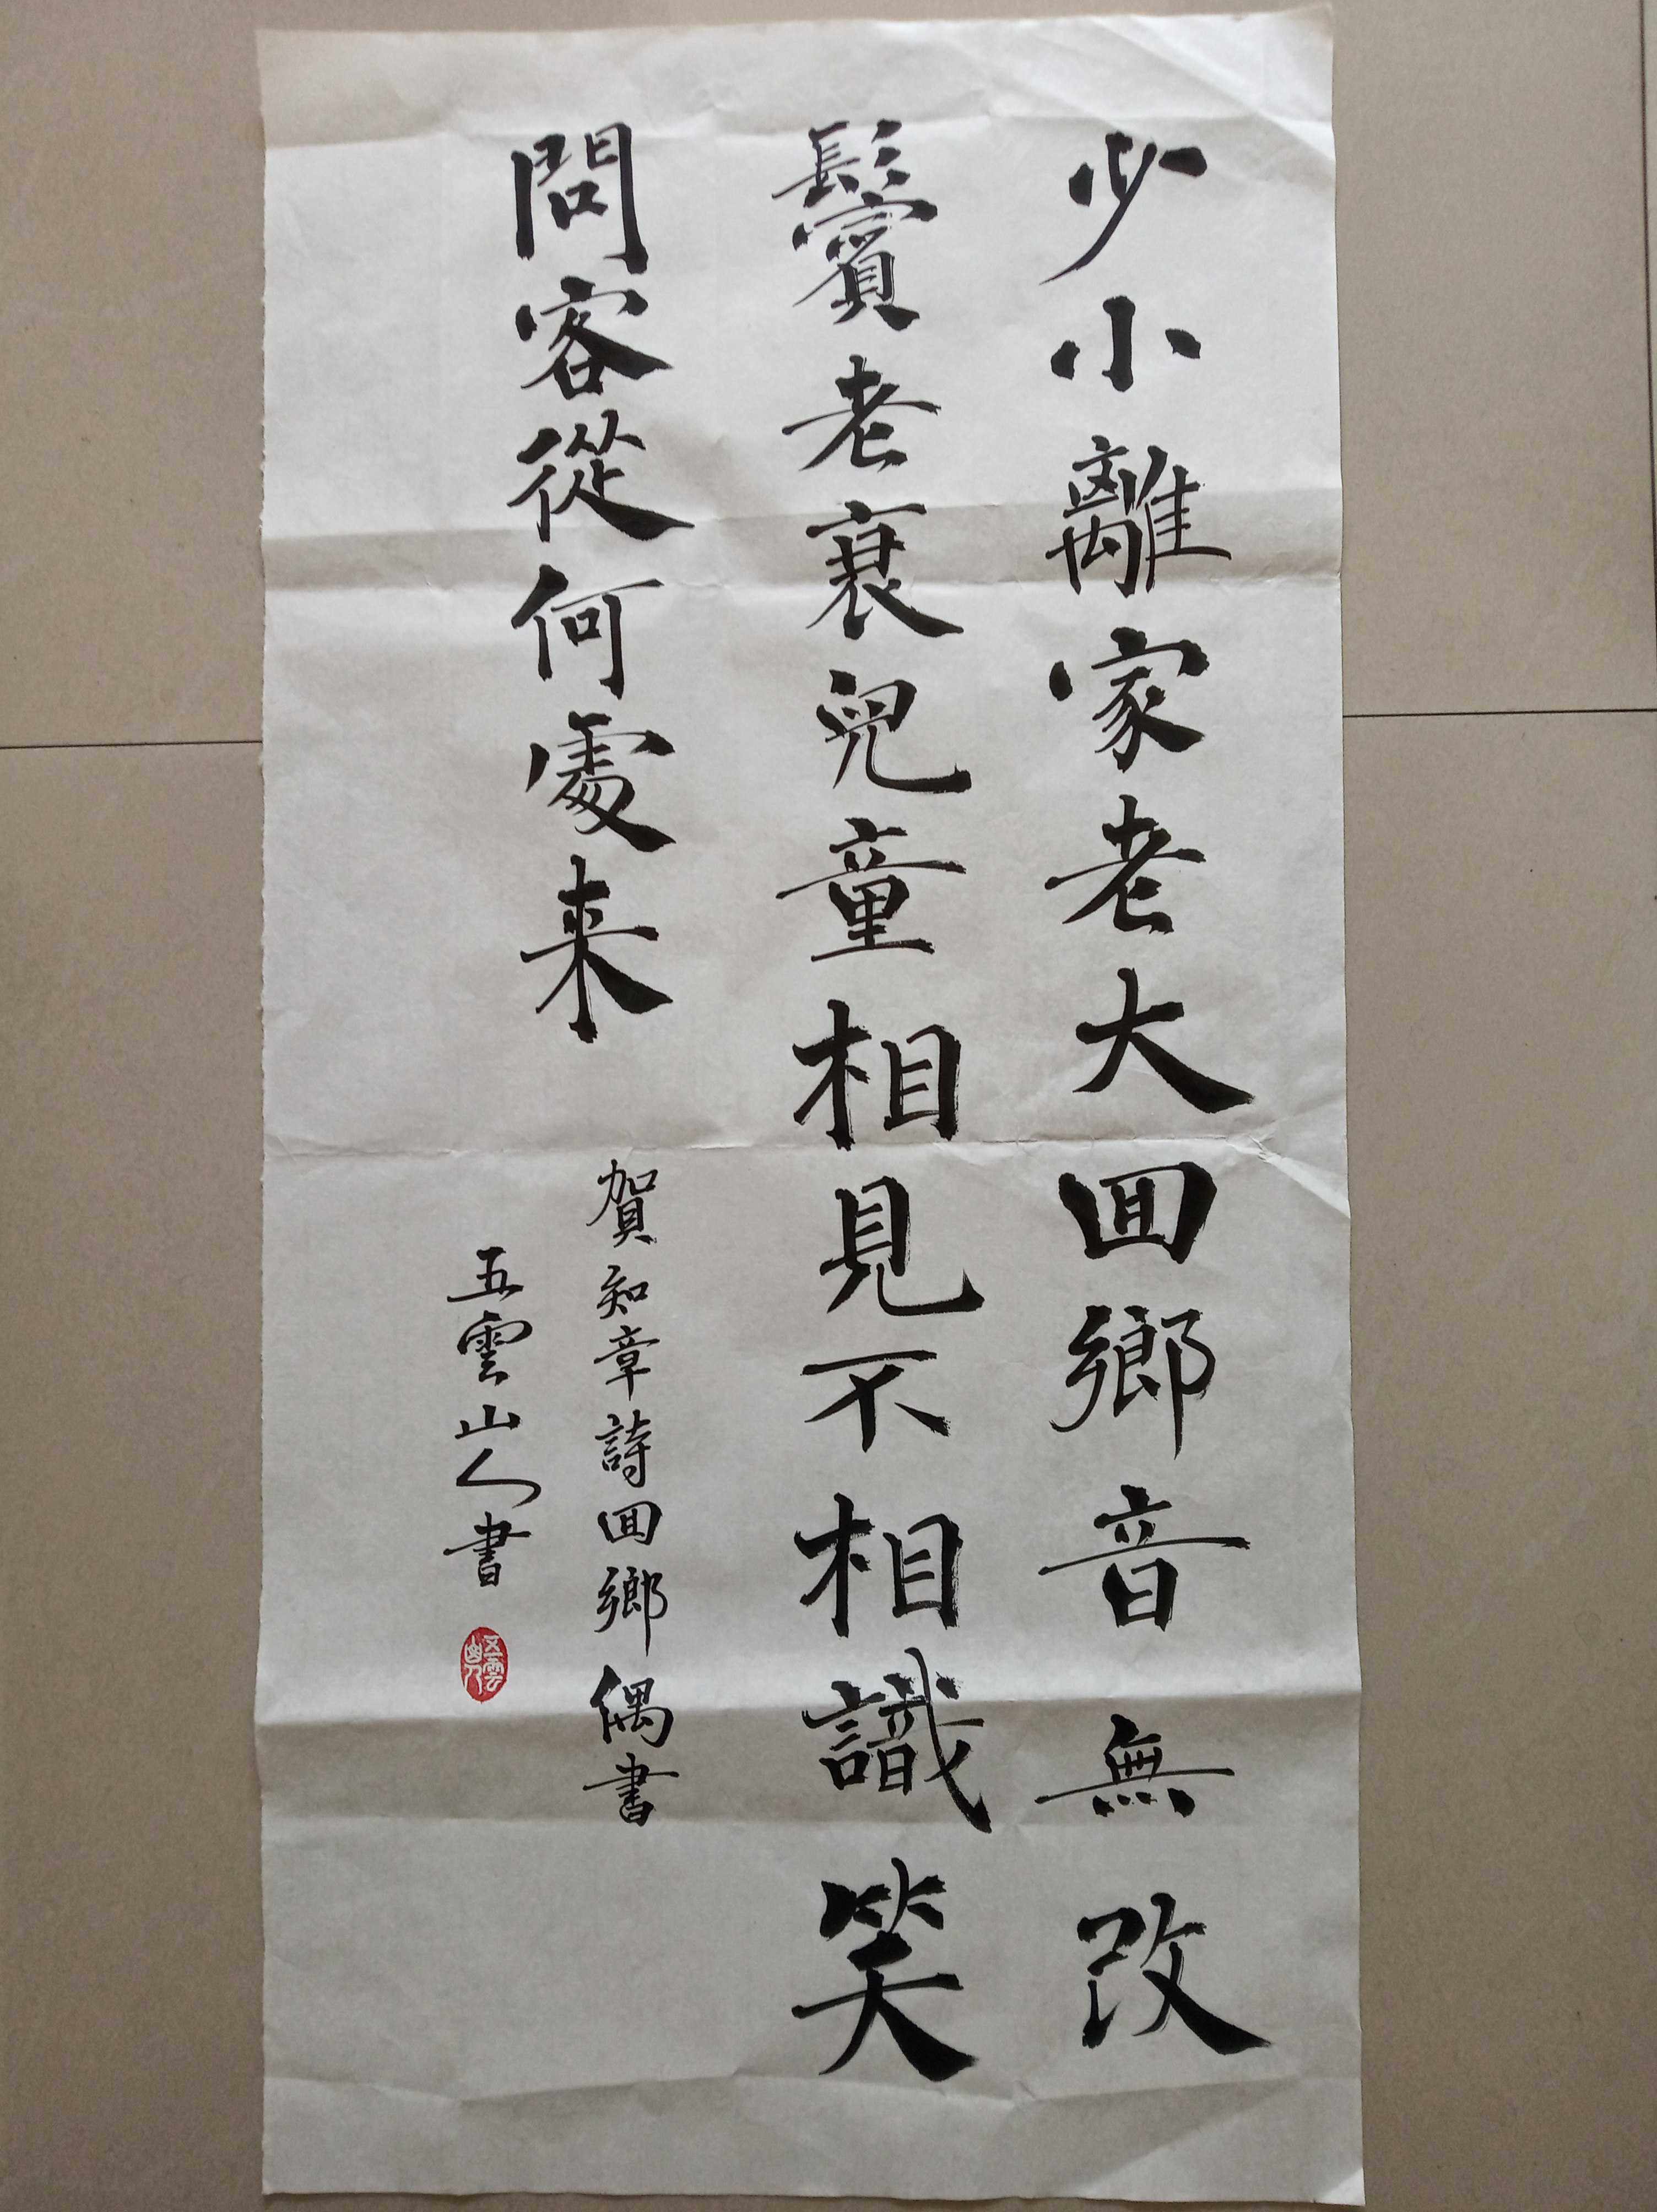 少小離家老大回鄉音無改
鬢老衰兒童相見不相識笑
問客從何處来
賀知章詩回鄉偶書
五雲山人書
五雲山人